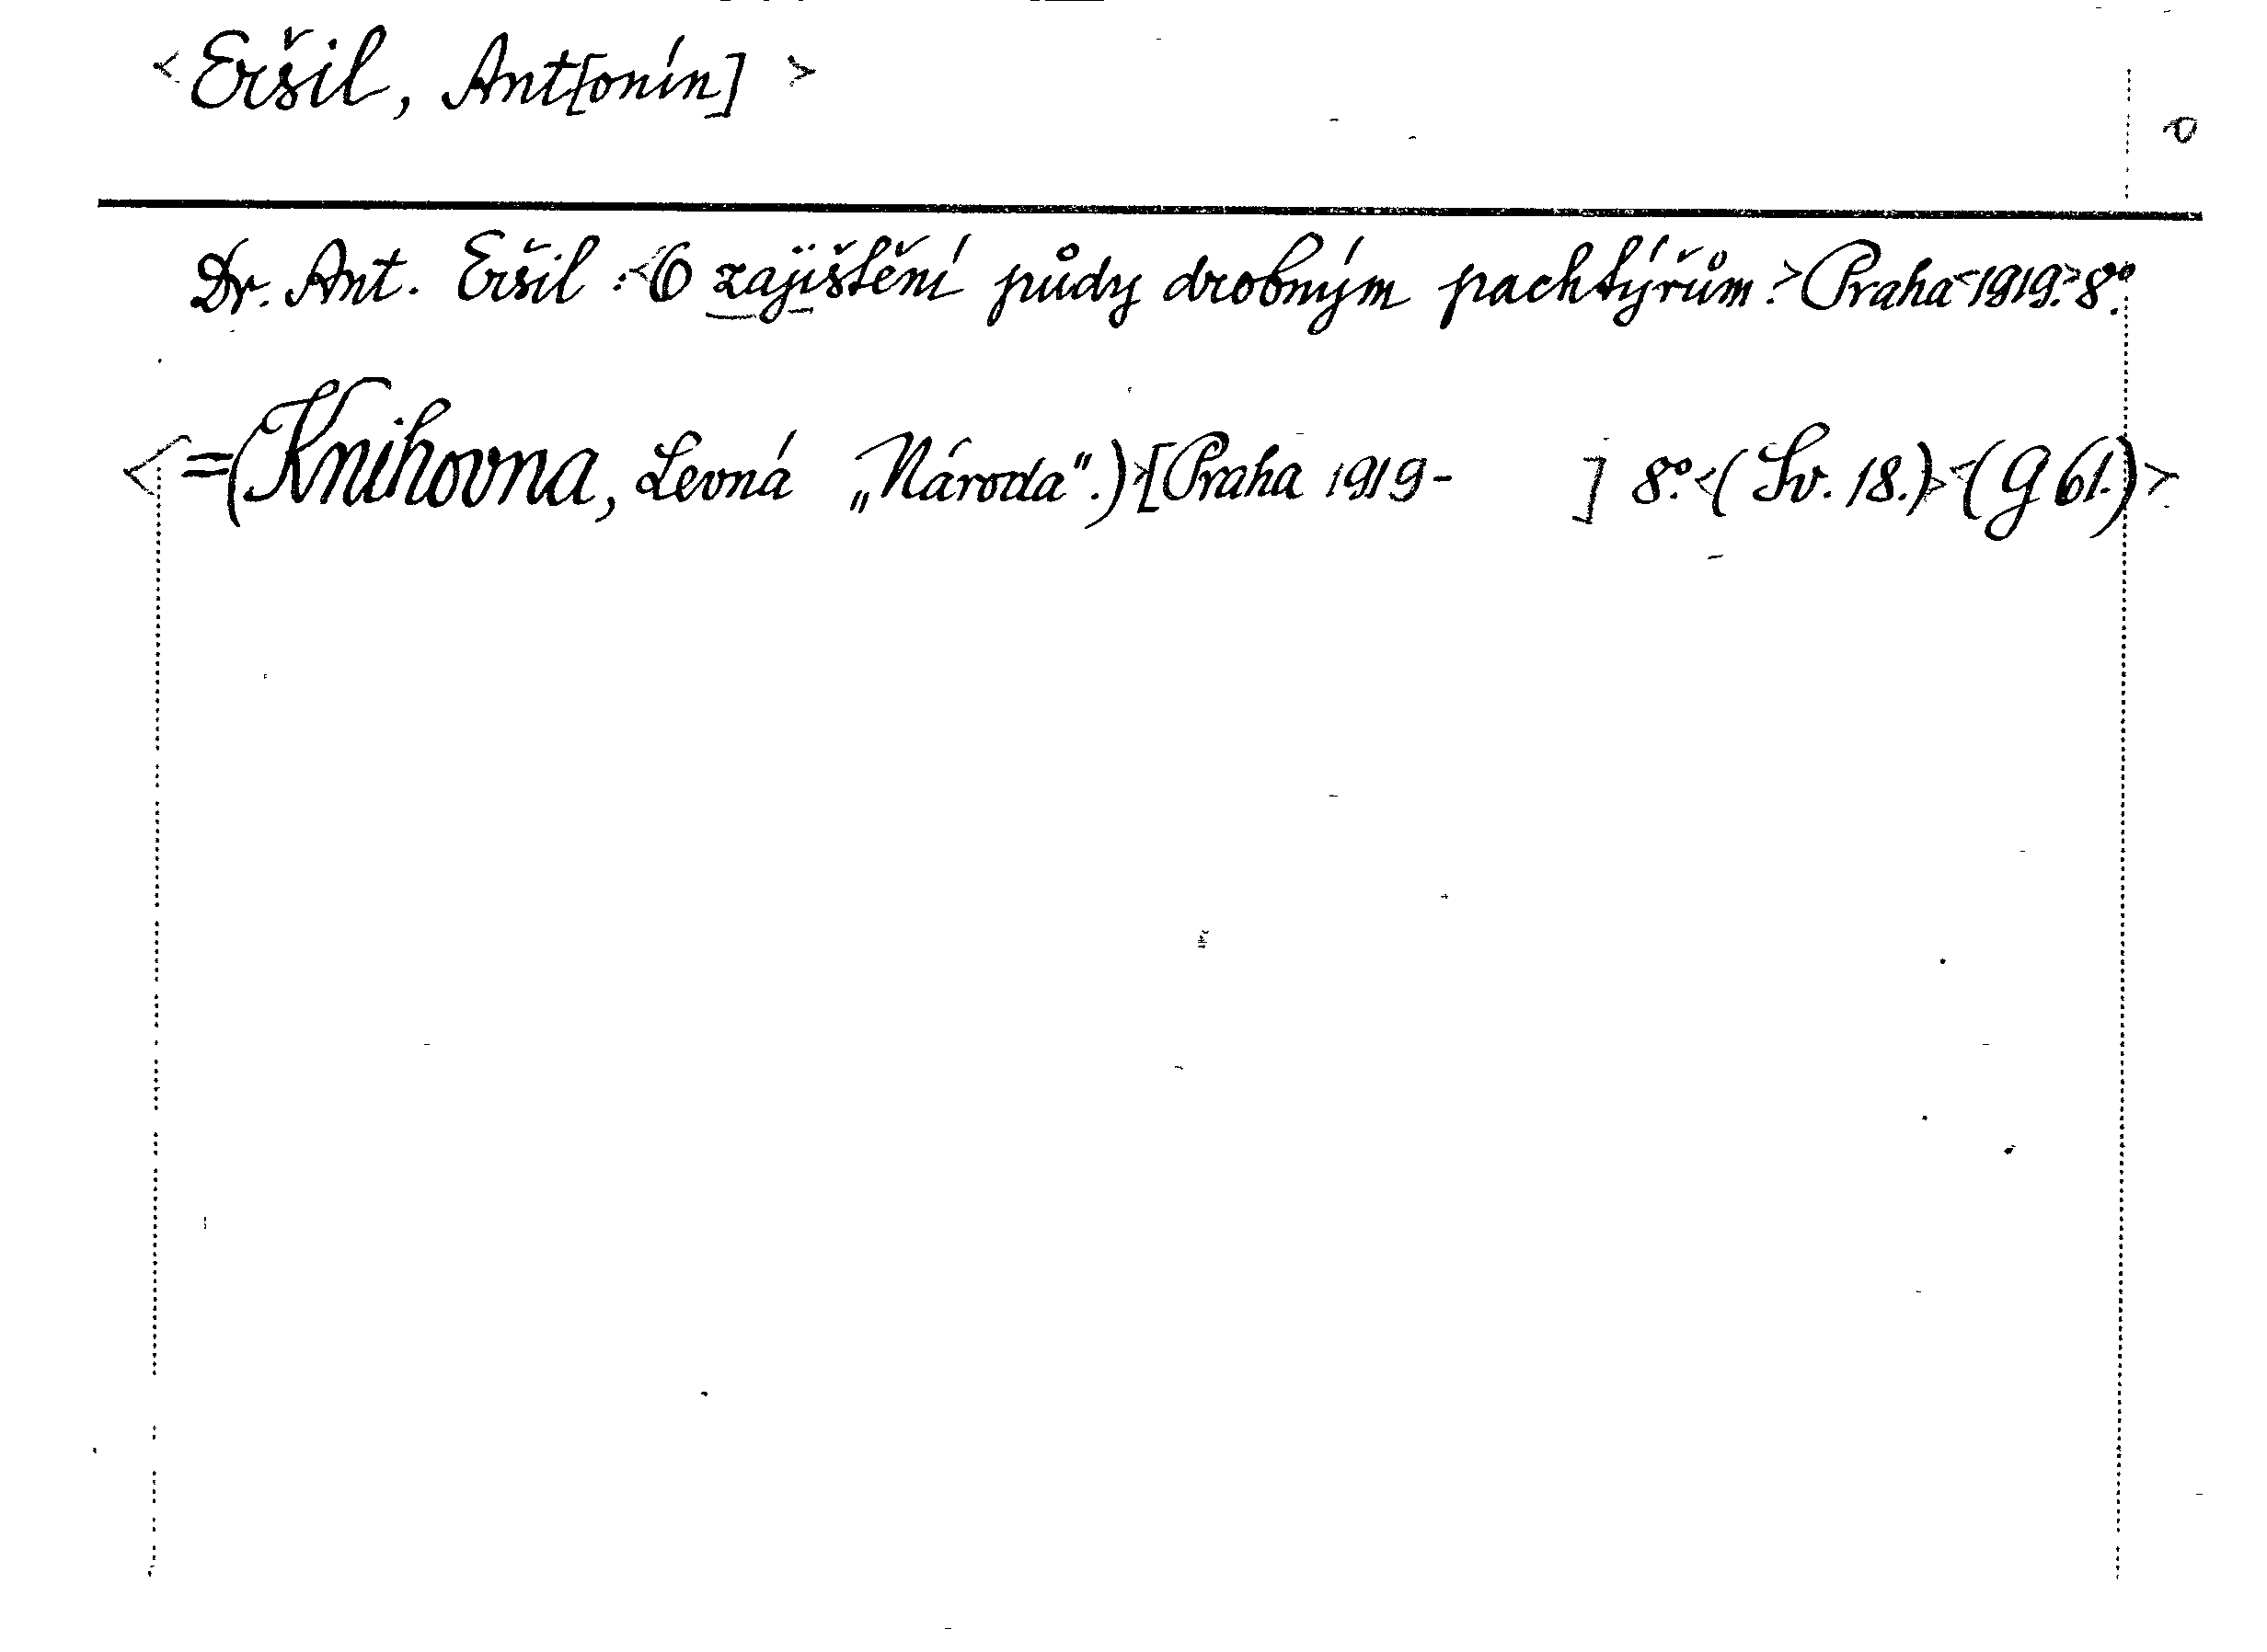 <Eršil, Ant[onín]>
Dr. Ant. Eršil :<O zajištění půdy drobným pachtýřům.> Praha <1919.> 8°.
<=(Knihovna, Levná „Národa".)>[Praha 1919- ] 8°. <(Sv. 18.)> <(G 61.)>